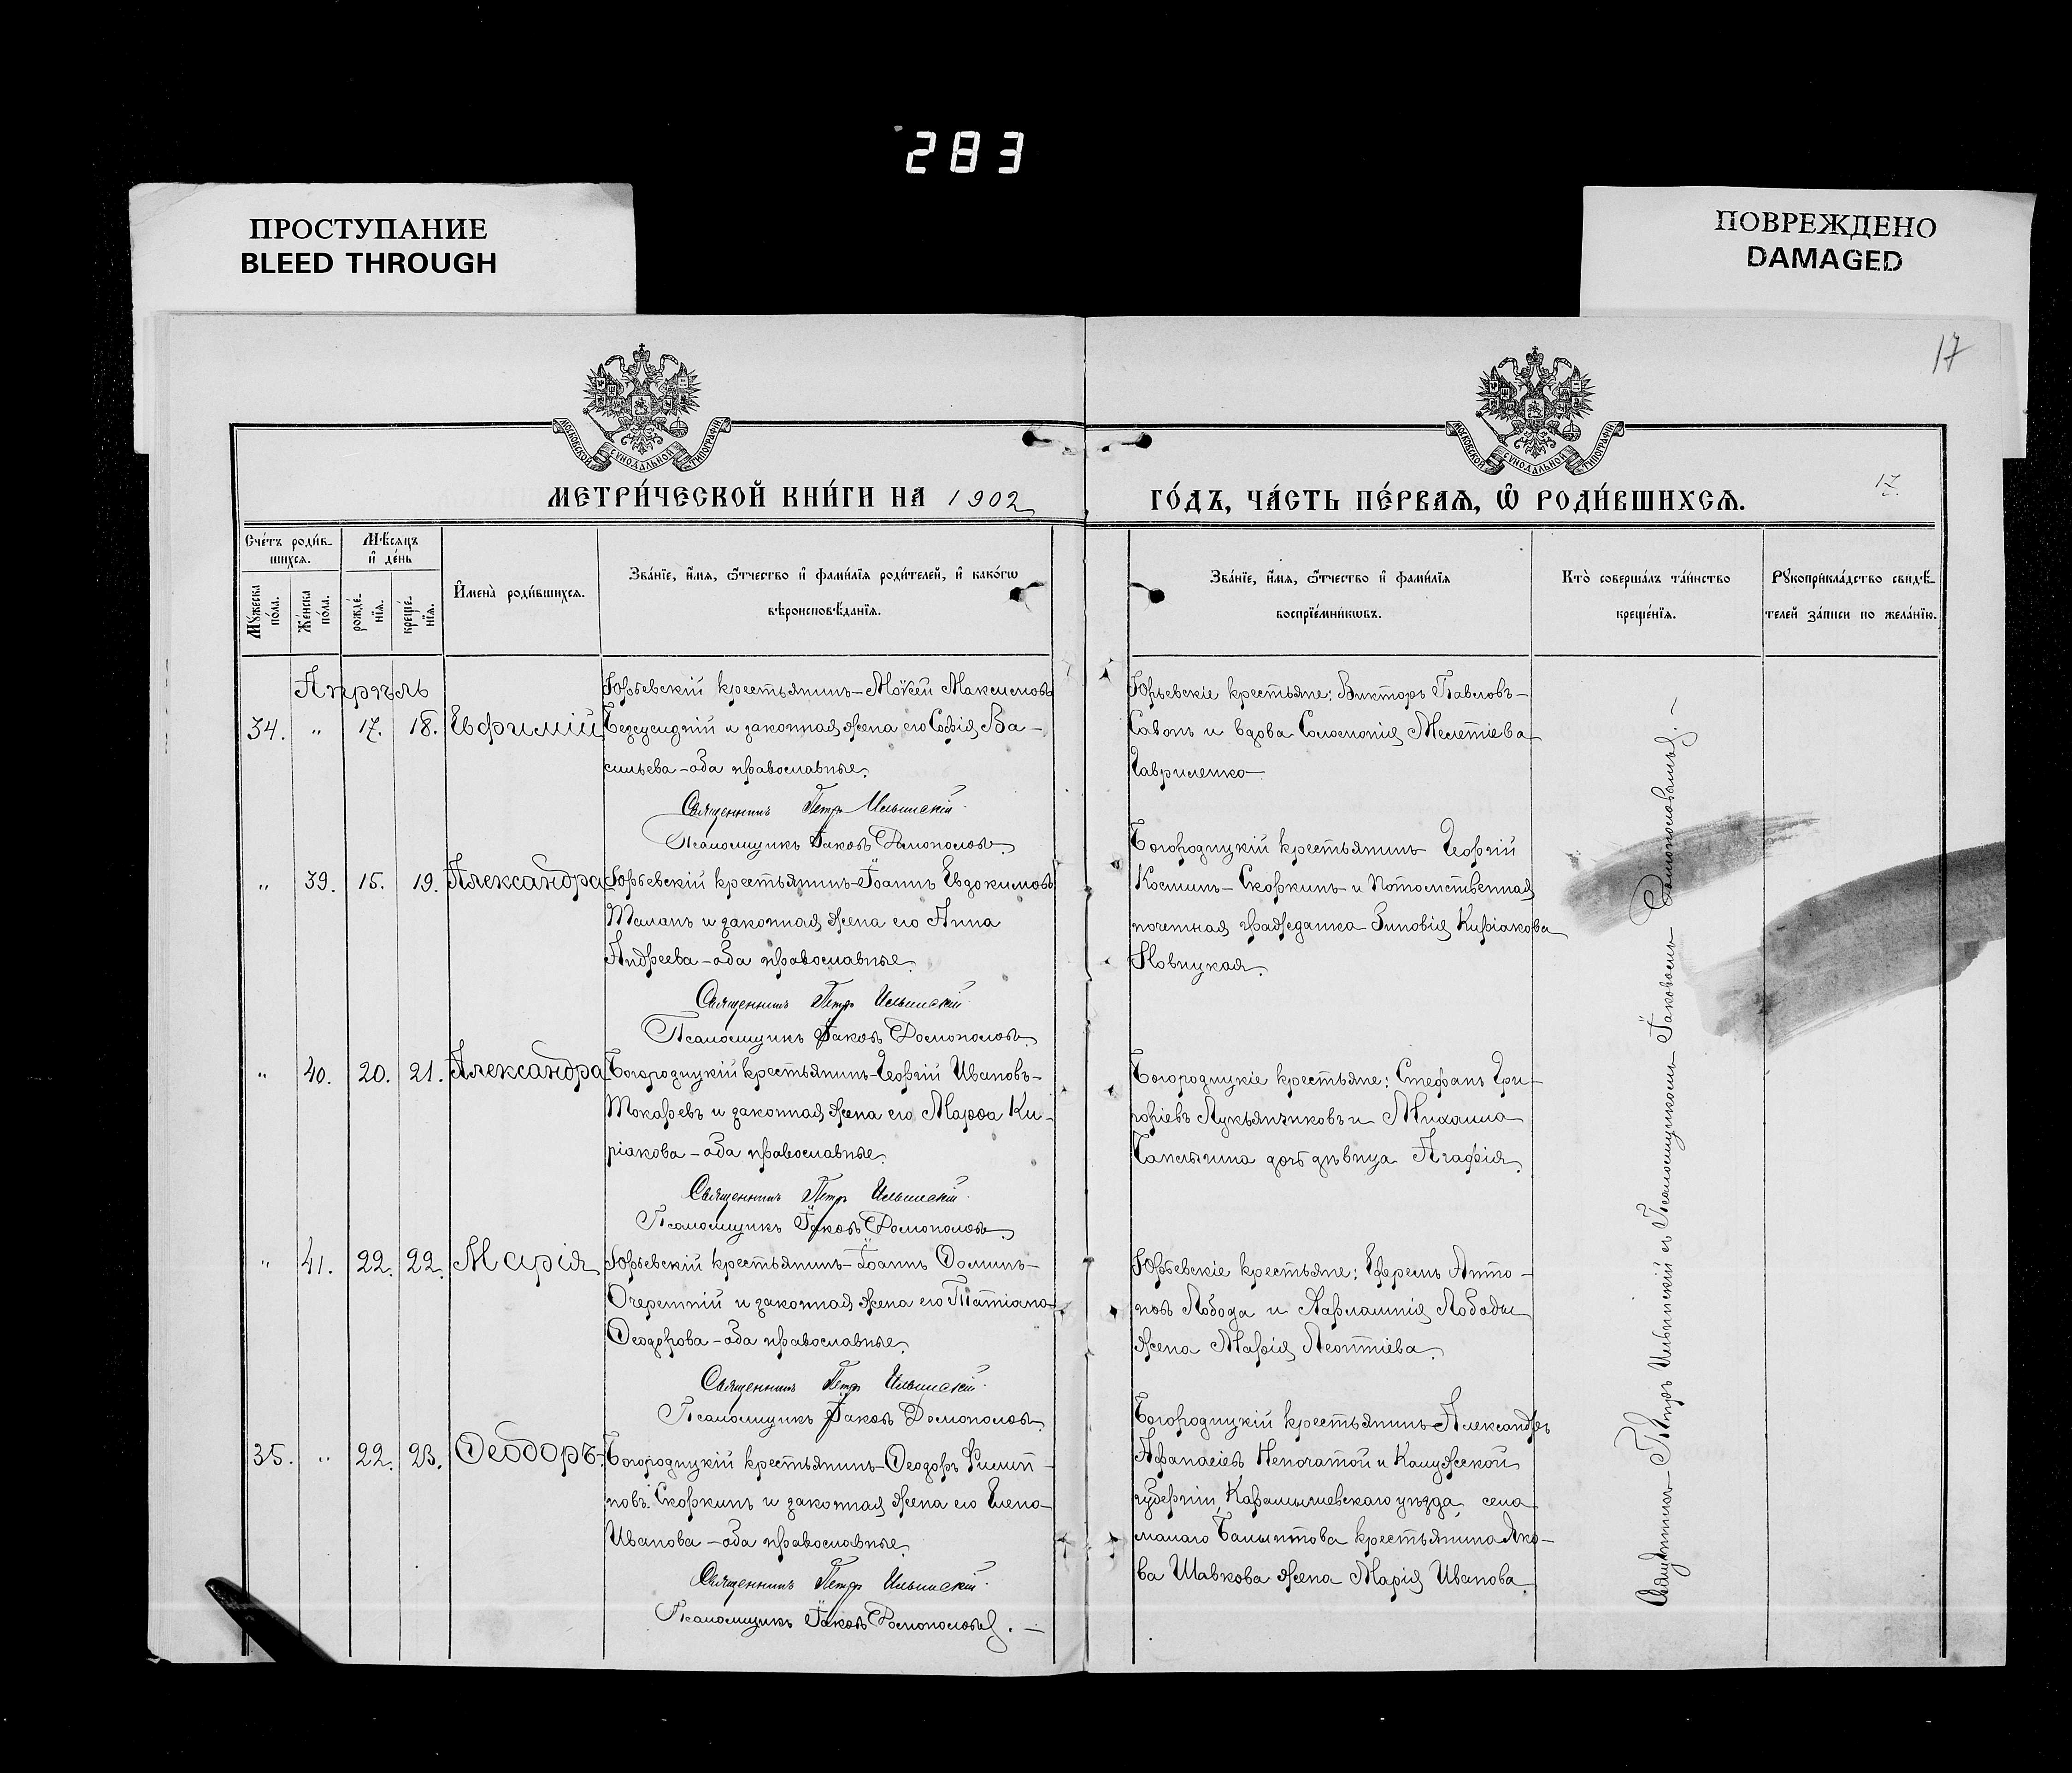 283
ПРОСТУПАНИЕ
BLEED THROUGH
ПОВРЕЖДЕНО
DAMAGED
17
МОСКОВСКОЙ СѴНОДАЛЬНОЙ ТИПОГРАФІИ
МОСКОВСКОЙ СѴНОДАЛЬНОЙ ТИПОГРАФІИ
МЕТРИ́ЧЕСКОЙ КНИ́ГИ НА 1902
ГО́ДЪ, ЧА́СТЬ ПЕ́РВАѦ, Ѽ РОДИ́ВШИХСѦ.
17.
Сче́тъ роди́в-
шихсѧ.
Мꙋжеска по́ла.
Же́нска по́ла.
Мѣ́сѧцъ и҆ де́нь
рожде́-нїѧ.
креще́-нїѧ.
И҆мена̀ роди́вшихсѧ.
Зва́нїе, и҆́мѧ, ѻ҆́тчество и҆ фами́лїѧ роди́телей, и҆ како́гѡ
вѣроисповѣ́данїѧ.
Зва́нїе, и҆́мѧ, ѻ҆́тчество и҆ фами́лїѧ
воспрїе́мникѡвъ.
Кто̀ соверша́лъ та́инство
креще́нїѧ.
Рꙋкоприкла́дство свидѣ́-
телей за́писи по жела́нїю.
Апрѣль
34. " 17. 18. Евфимій
Юрьевскій крестьянинъ Моѵсей Максимовъ
Безсуидній и законная жена его Софія Ва-
сильева - оба православные.
Священникъ Петръ Ильинскій
Псаломщикъ Іаковъ Домонологовъ
Юрьевскіе крестьяне: Викторъ Павловъ
Савонъ и вдова Соломонія Мелетіева
Гавриленко
" 39. 15. 19. Александра
Юрьевскій крестьянинъ Іоаннъ Евдокимовъ
Таланъ и законная жена его Анна
Андреева - оба православные.
Священникъ Петръ Ильинскій
Псаломщикъ Іаковъ
Богородицкій крестьянинъ Георгій
Косминъ Скоркинъ и потомственная
почетная гражданка Зиновія Киріакова
Новицкая.
" 40. 20. 21. Александра
Богородицкій крестьянинъ Георгій Ивановъ
Токаревъ и законная жена его Марѳа Ки-
ріакова - оба православные.
Священникъ Петръ Ильинскій
Псаломщикъ Іаковъ
Богородицкіе крестьяне: Стефанъ Гри-
горіевъ Лукьянчиковъ и Михаила
Баклыгина дочь дѣвица Агафія.
" 41. 22. 22. Марія
Юрьевскій крестьянинъ Іоаннъ Ѳоминъ
Очеретній и законная жена его Татіана
Ѳеодорова - оба православные.
Священникъ Петръ Ильинскій
Псаломщикъ Іаковъ
Юрьевскіе крестьяне: Ефремъ Анто-
новъ Лобода и Харлампія Лободы
жена Марія Леонтіева.
35. " 22. 23. Ѳеодоръ
Богородицкій крестьянинъ Ѳеодоръ Филип-
повъ Скоркинъ и законная жена его Елена
Иванова - оба православные.
Священникъ Петръ Ильинскій
Псаломщикъ Іаковъ
Богородицкій крестьянинъ Александръ
Афанасіевъ Непочатой и Калужской
губерніи, уѣзда, села
малаго крестьянина Яко-
ва Шавкова жена Марія Иванова
Священникъ Петръ Ильинскій съ Псаломщикомъ Іаковомъ